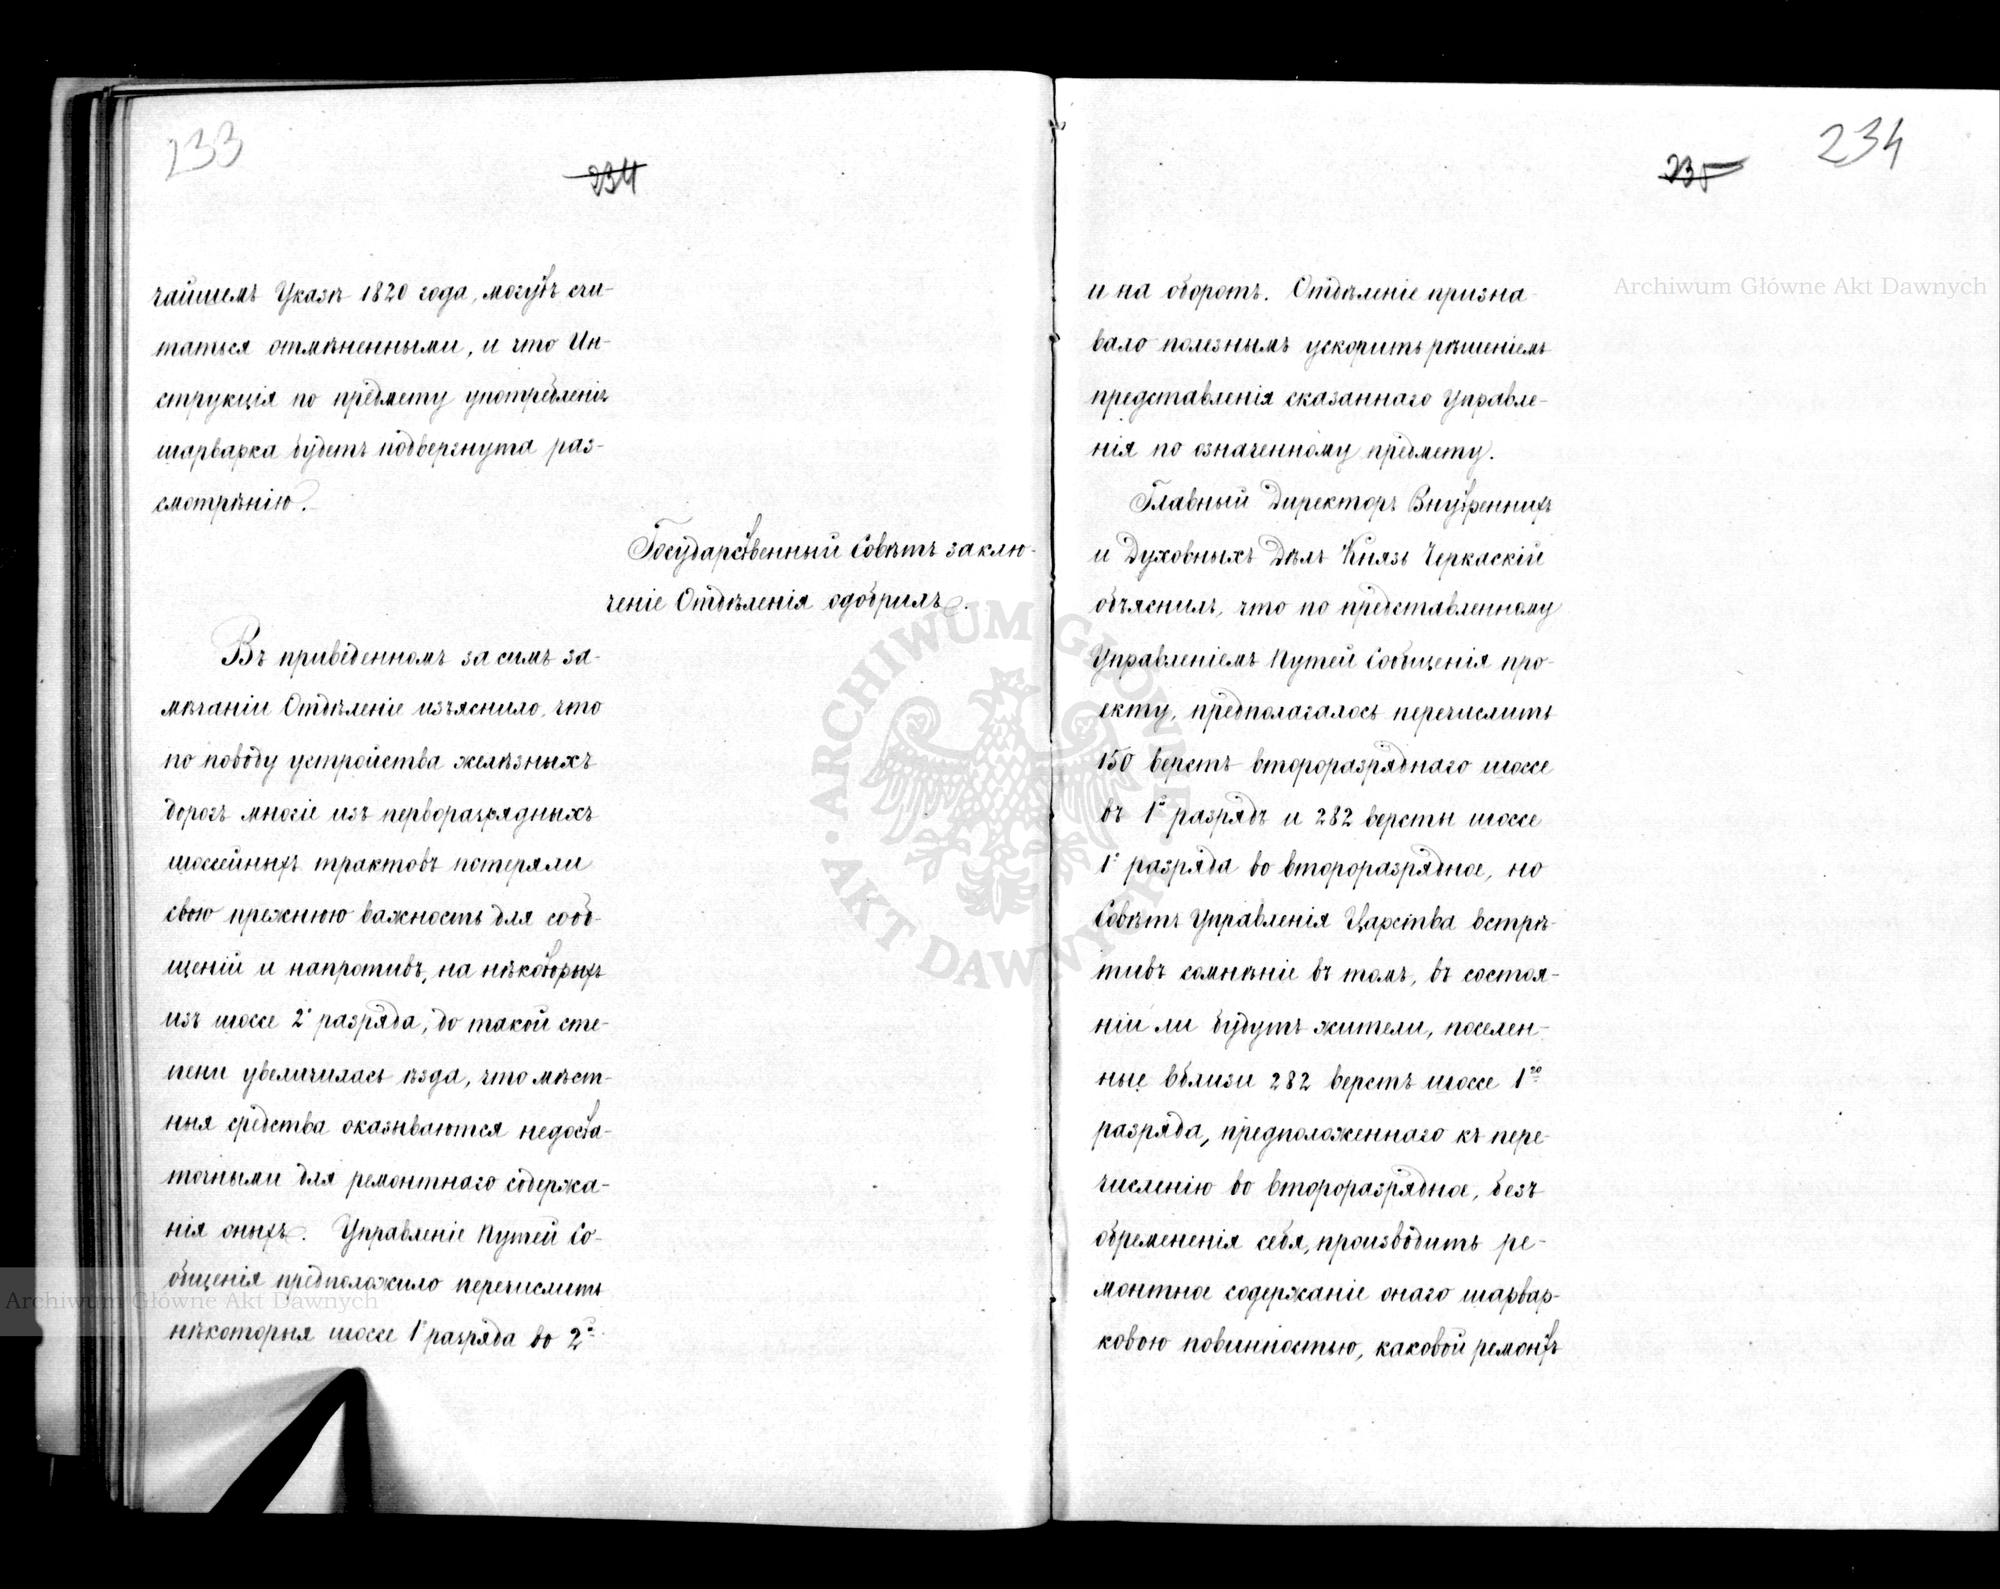 233
234
чайшемъ Указѣ 1820 года, могутъ счи-
таться отмѣненными, и что Ин-
струкція по предмету употребленія
шарварка будетъ подвергнута раз-
смотрѣнію.
Государственный Совѣтъ заклю-
ченіе Отдѣленія одобрилъ.
Въ приведенномъ за симъ за-
мѣчаніи Отдѣленіе изъяснило, что
по поводу устройства желѣзныхъ
дорогъ многіе изъ перворазрядныхъ
шоссейныхъ трактовъ потеряли
свою прежнюю важность для сооб-
щеній и напротивъ, на нѣкоторыхъ
изъ шоссе 2о разряда, до такой сте-
пени увеличилась ѣзда, что мѣст-
ныя средства оказываются недоста-
точными для ремонтнаго содержа-
нія оныхъ. Управленіе Путей Со-
общенія предположило перечислить
нѣкоторыя шоссе 1о разряда во 2о
234
235
и на оборотъ. Отдѣленіе призна-
вало полезнымъ ускорить рѣшеніемъ
представленія сказаннаго Управле-
нія по означенному предмету.
Главный Директоръ Внутреннихъ
и Духовныхъ Дѣлъ Князь Черкаскій
объяснилъ, что по представленному
Управленіемъ Путей Сообщенія про-
екту, предполагалось перечислить
150 верстъ второразряднаго шоссе
въ 1й разрядъ и 282 версты шоссе
1о разряда во второразрядное, но
Совѣтъ Управленія Царства встрѣ-
тивъ сомнѣніе въ томъ, въ состоя-
ніи ли будутъ жители, поселен-
ные вблизи 282 верстъ шоссе 1го
разряда, предположеннаго къ пере-
численію во второразрядное, безъ
обремененія себя, производить ре-
монтное содержаніе онаго шарвар-
ковою повинностью, каковой ремонтъ
Archiwum Główne Akt Dawnych
Archiwum Główne Akt Dawnych
ARCHIWUM GŁÓWNE AKT DAWNYCH